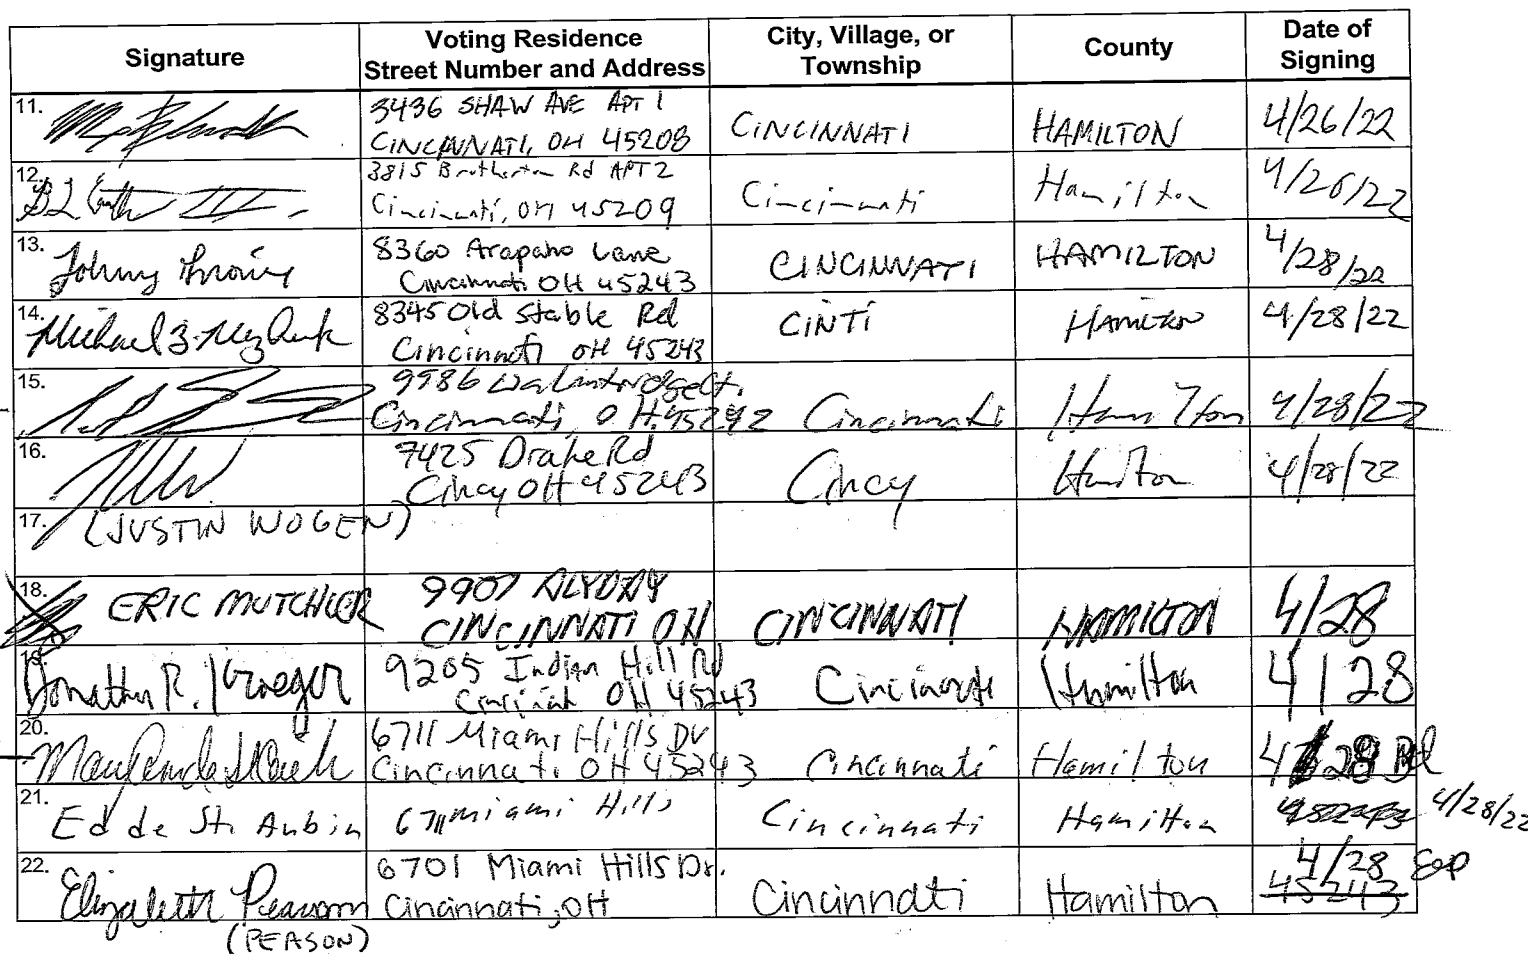 Signature Voting Residence Street Number and Address City, Village, or Township County Date of Signing
11. 3436 SHAW AVE APT 1
CINCINNATI, OH 45208 CINCINNATI HAMILTON 4/26/22
12. 3815 Brotherton Rd APT 2
Cincinnati, OH 45209 Cincinnati Hamilton 4/26/22
13. Johnny 8360 Arapaho Lane
Cincinnati OH 45243 CINCINNATI HAMILTON 4/28/22
14. Michael 8345 Old Stable Rd
Cincinnati OH 45243 CINTI HAMILTON 4/28/22
15. 9986
Cincinnati, OH. 45242 Cincinnati Hamilton 4/28/22
16. 7425 Drake Rd
Cincy OH 45243 Cincy Hamilton 4/28/22
17. (JUSTIN WOGEN)
18. ERIC MUTCHLER 9907
CINCINNATI OH CINCINNATI HAMILTON 4/28
19. Jonathan R. Kroeger 9205 Indian Hill Rd
Cincinnati OH 45243 Cincinnati Hamilton 4/28
20. 6711 Miami Hills Dr
Cincinnati OH 45243 Cincinnati Hamilton 4/28
21. Ed de St. Aubin 6711 Miami Hills Cincinnati Hamilton 4/28/22
22. Elizabeth 6701 Miami Hills Dr.
Cincinnati, OH Cincinnati Hamilton 4/28 EGP
45243
(PEASON)